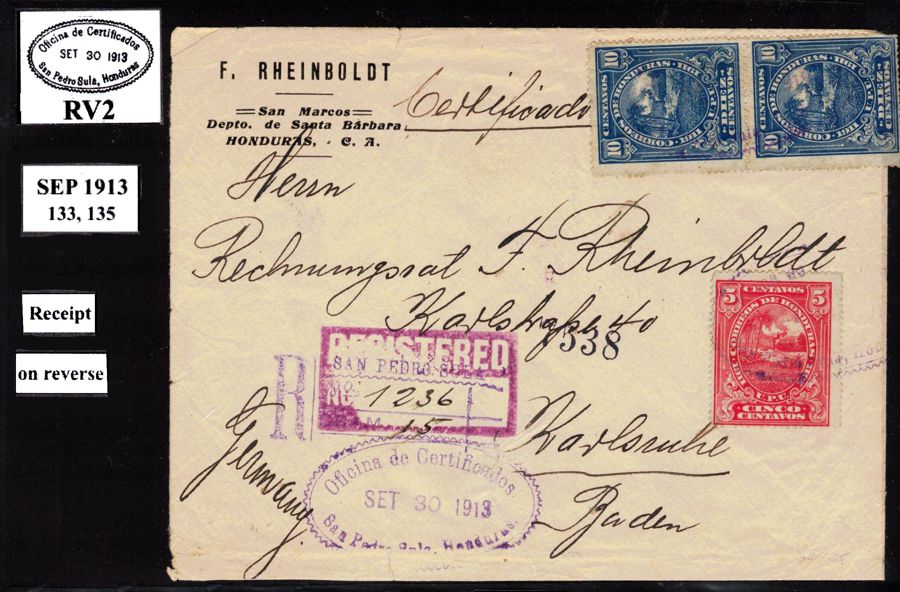 Oficina de Certificados
SET 30 1913
San Pedro Sula, Honduras
RV2
SEP 1913
133, 135
Receipt
on reverse
F. RHEINBOLDT
San Marcos
Depto. de Santa Bárbara
HONDURAS, - C. A.
Certificado
10 10
CORREOS DE HONDURAS 1911
U.P.U.
CENTAVOS
10 10
10 10
CORREOS DE HONDURAS 1911
U.P.U.
CENTAVOS
10 10
Herrn
Rechnungsrat F. Rheinboldt
Karlstraße 40
1538
5 CENTAVOS 5
CORREOS DE HONDURAS 1911
U.P.U.
CINCO
CENTAVOS
REGISTERED
SAN PEDRO SULA
R
No 1236
15
Karlsruhe
Baden
Germany
Oficina de Certificados
SET 30 1913
San Pedro Sula, Honduras.